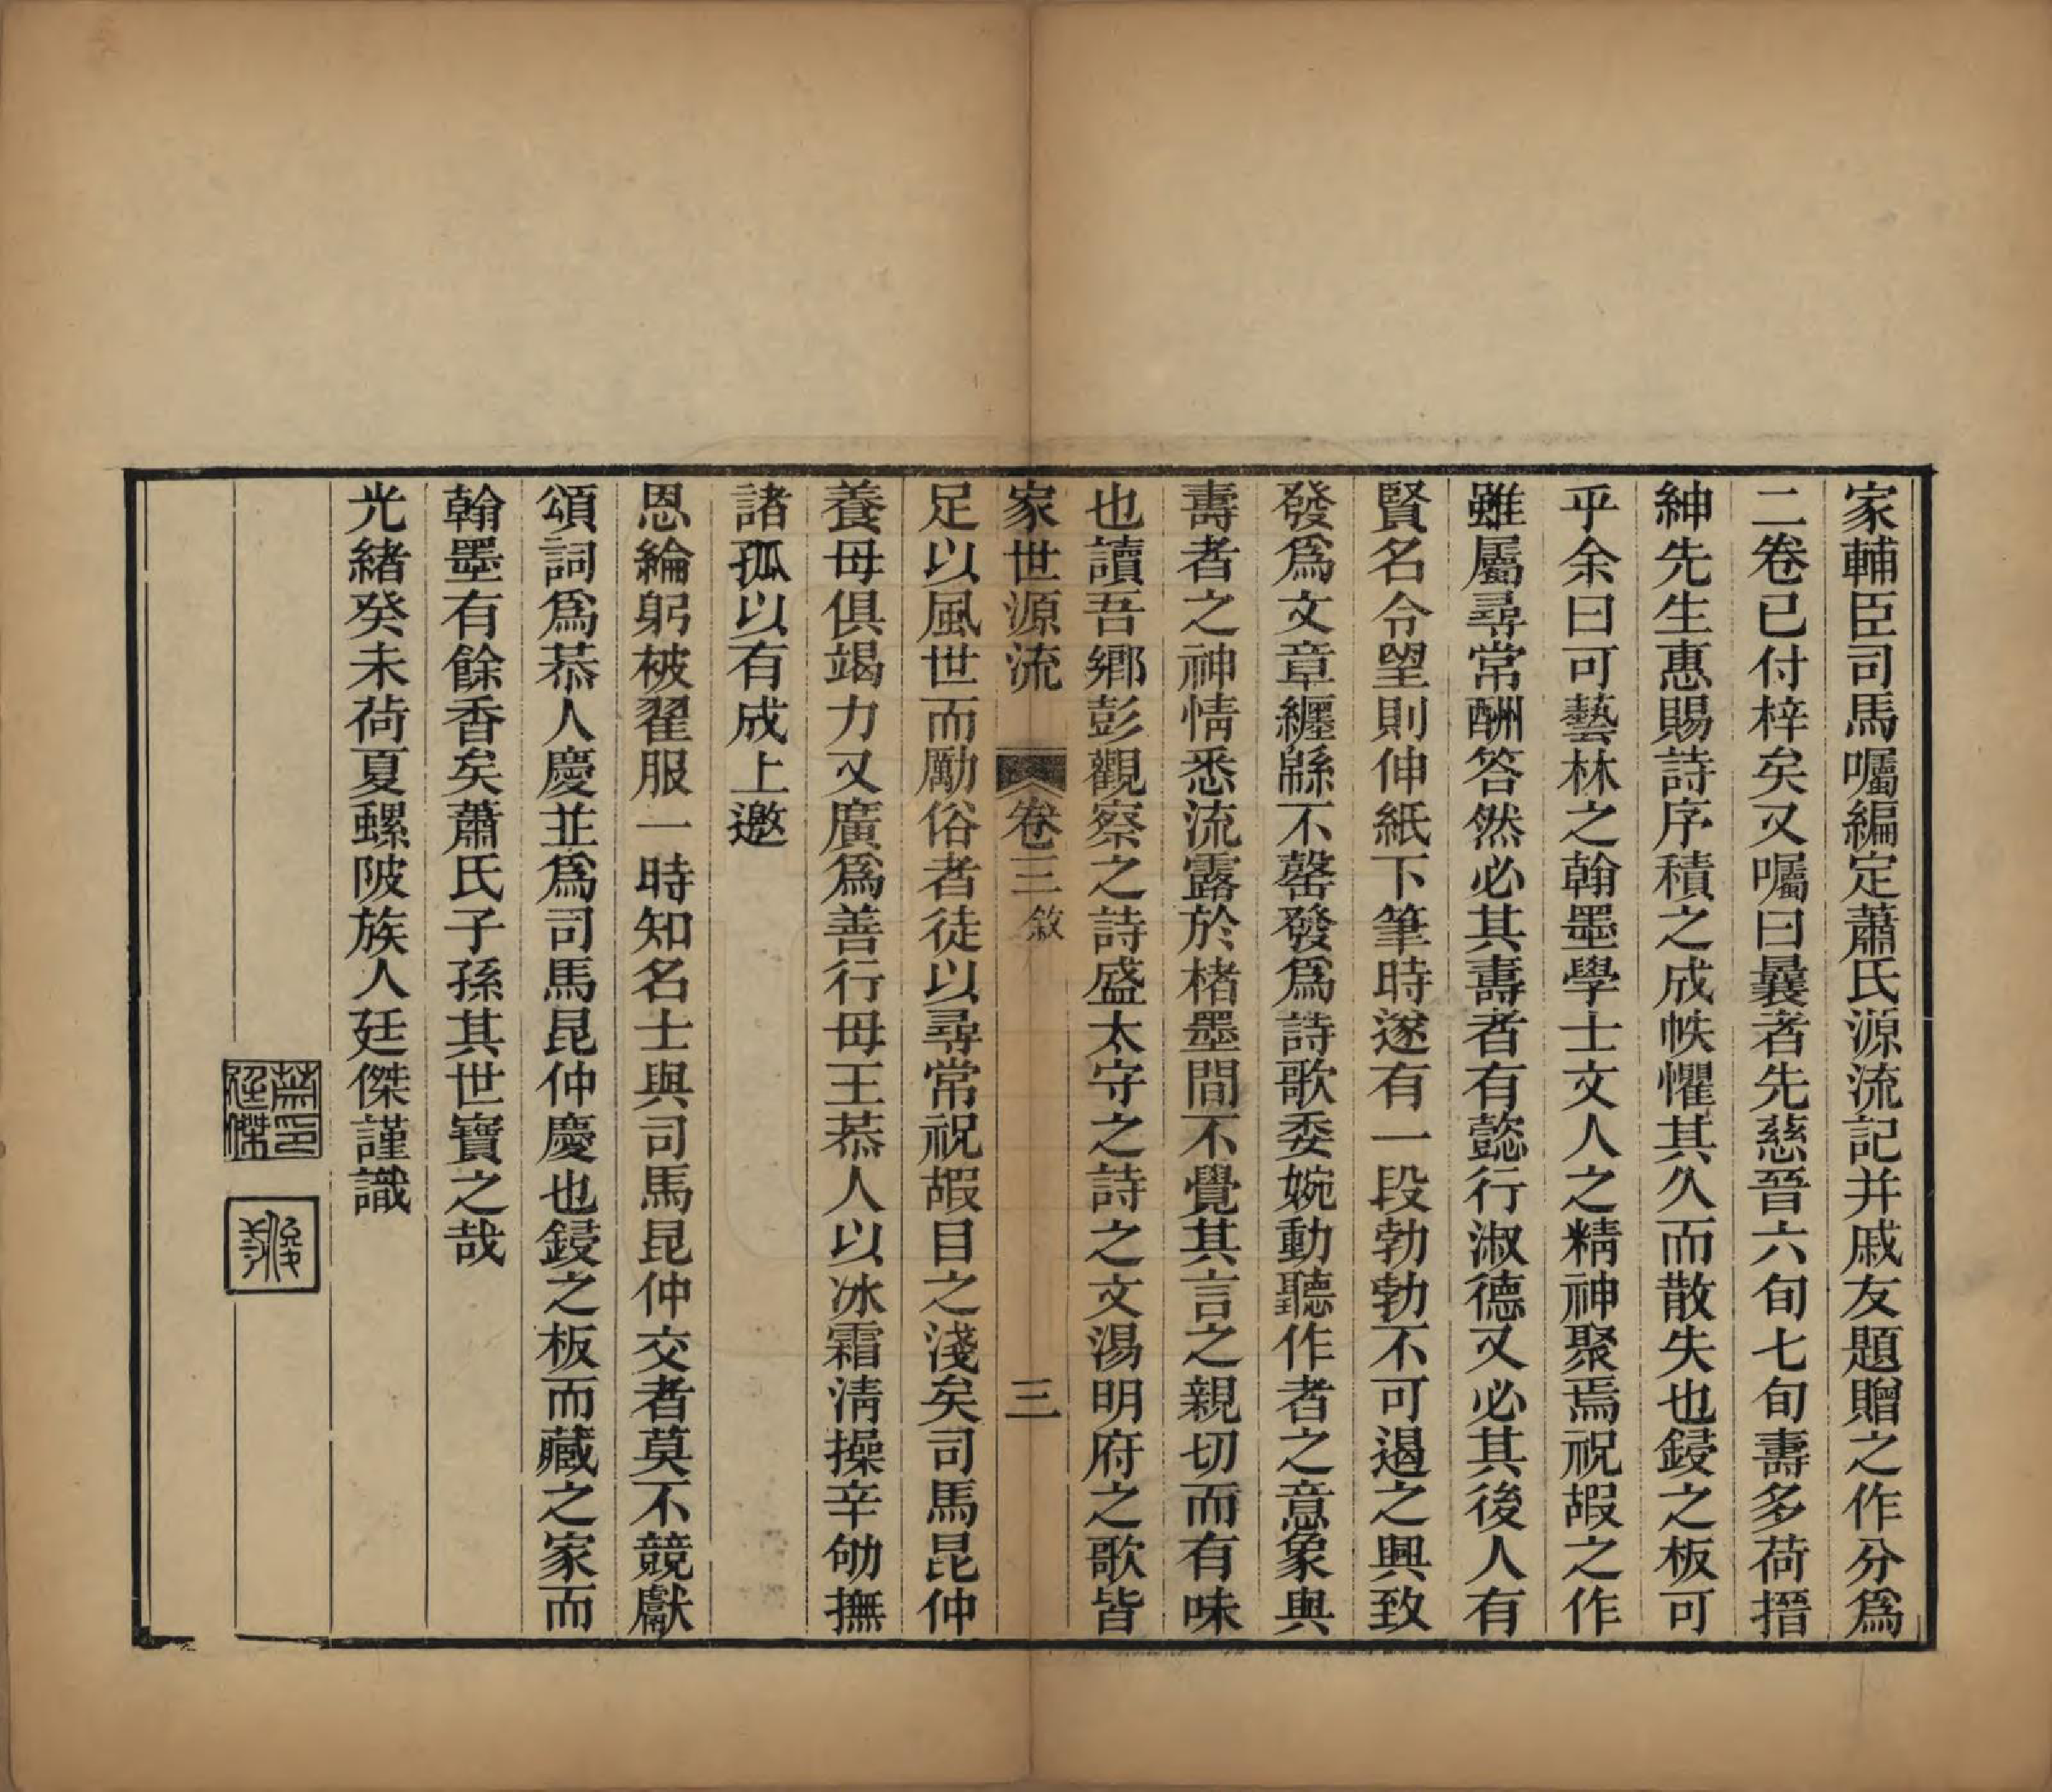 家輔臣司馬囑編定蕭氏源流記并戚友題贈之作分爲
二卷已付梓矣又囑曰曩者先慈晉六旬七旬壽多荷搢
紳先生惠賜詩序積之成帙懼其久而散失也鋟之板可
乎余曰可藝林之翰墨學士文人之精神聚焉祝嘏之作
雖屬尋常酬答然必其壽者有懿行淑德又必其後人有
賢名令望則伸紙下筆時遂有一段勃勃不可遏之興致
發爲文章纏緜不罄發爲詩歌委婉動聽作者之意象與
壽者之神情悉流露於楮墨間不覺其言之親切而有味
也讀吾鄉彭觀察之詩盛太守之詩之文湯明府之歌皆
家世源流 卷三敘 三
足以風世而勵俗者徒以尋常祝嘏目之淺矣司馬昆仲
養母俱竭力又廣爲善行母王恭人以冰霜淸操辛劬撫
諸孤以有成上邀
恩綸躬被翟服一時知名士與司馬昆仲交者莫不競獻
頌詞爲恭人慶並爲司馬昆仲慶也鋟之板而藏之家而
翰墨有餘香矣蕭氏子孫其世寶之哉
光緒癸未荷夏螺陂族人廷傑謹識